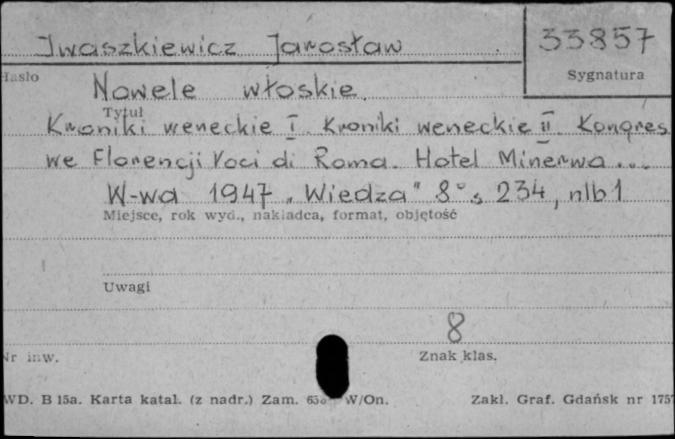 Iwaszkiewicz Jarosław
33857
Hasło
Sygnatura
Nowele włoskie.
Tytuł
Kroniki weneckie I. Kroniki weneckie II. Kongres
we Florencji Voci di Roma. Hotel Minerwa...
W-wa 1947 „Wiedza" 8° s 234, nlb 1
Miejsce, rok wyd., nakładca, format, objętość
Uwagi
8
Nr inw.
Znak klas.
WD. B 15a. Karta katal. (z nadr.) Zam. W/On.
Zakł. Graf. Gdańsk nr 1757